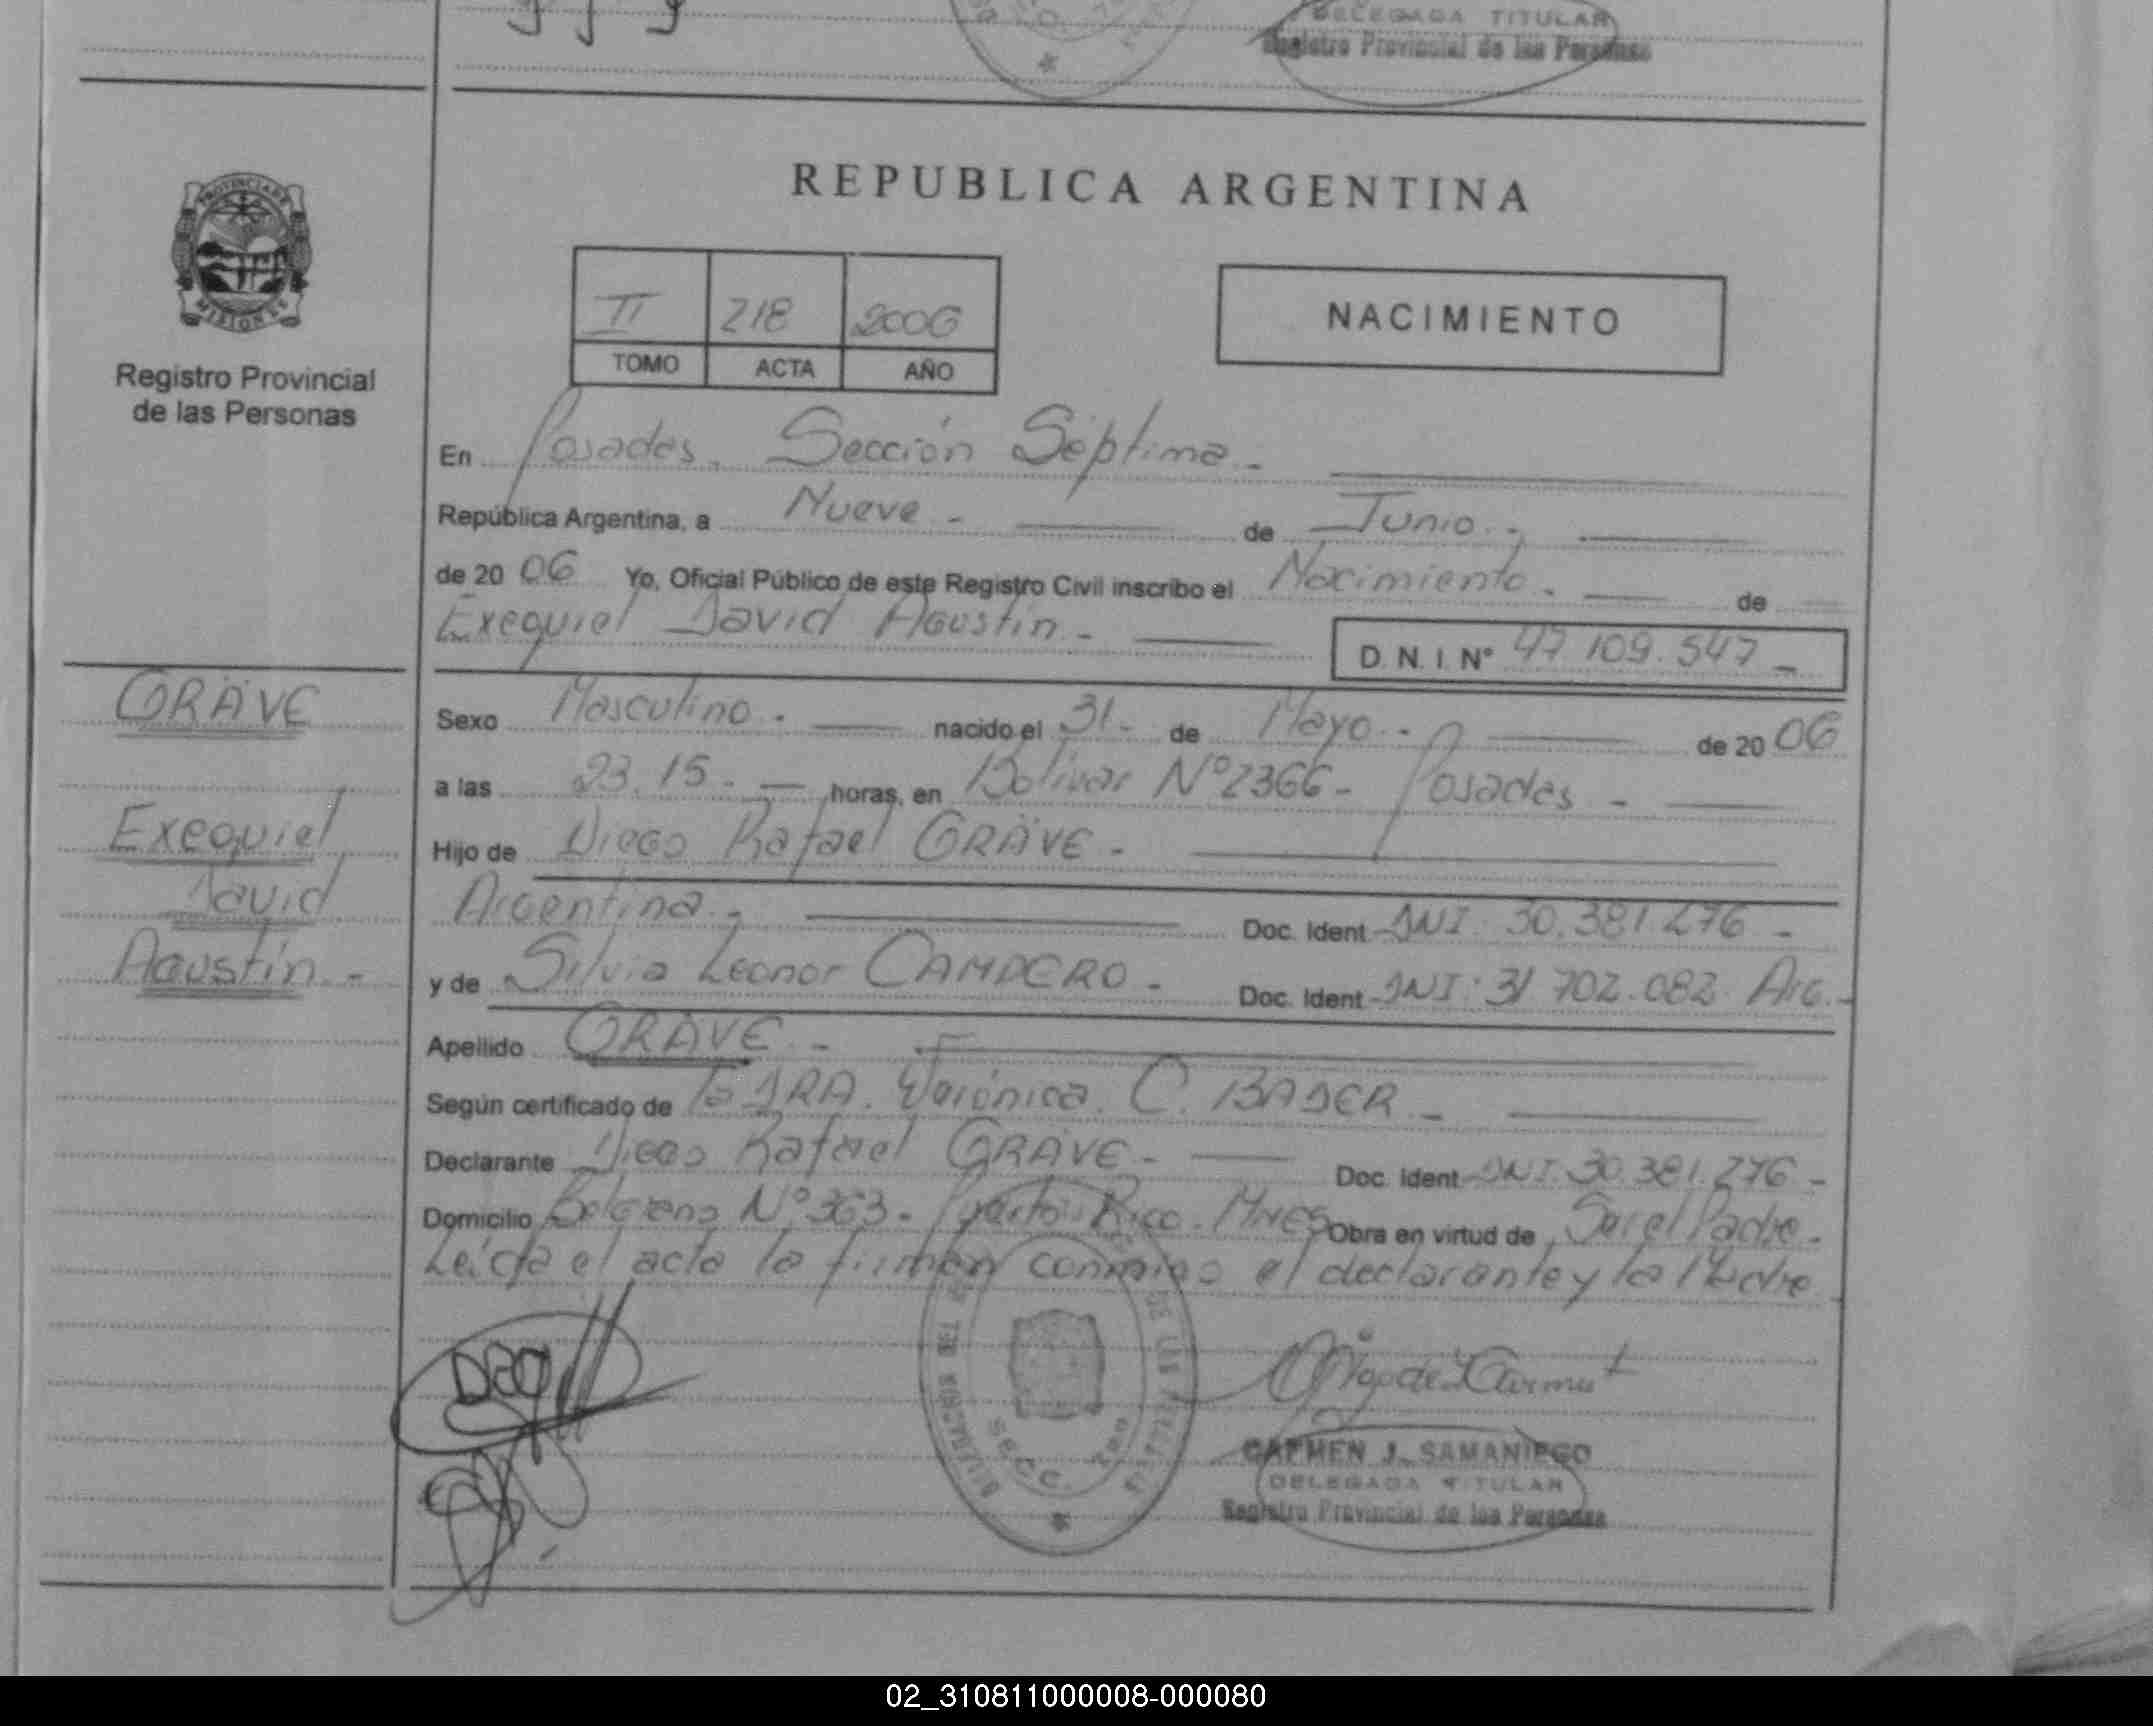 DELEGADA TITULAR
Registro Provincial de las Personas
PROVINCIA DE
MISIONES
Registro Provincial
de las Personas
REPUBLICA ARGENTINA
II 218 2006
TOMO ACTA AÑO
NACIMIENTO
En Posadas. Sección Séptima.-
República Argentina, a Nueve.- de Junio.-
de 2006 Yo, Oficial Público de este Registro Civil inscribo el Nacimiento.- de
Exequiel David Agustín.- D.N.I. Nº 47.109.547.-
GRÄVE
Exequiel
David
Agustín.-
Sexo Masculino.- nacido el 31.- de Mayo.- de 2006
a las 23.15.- horas, en Bolivar Nº2366- Posadas.-
Hijo de Diego Rafael GRÄVE.-
Argentina.- Doc. Ident. DNI. 30.381.276.-
y de Silvia Leonor CAMPERO.- Doc. Ident. DNI: 31.702.082. Arg.-
Apellido GRÄVE.-
Según certificado de la DRA. Verónica. C. BADER.-
Declarante Diego Rafael GRÄVE.- Doc. Ident. DNI. 30.381.276.-
Domicilio Belgrano Nº 363.- Puerto Rico. Mnes Obra en virtud de Ser el Padre.-
Leída el acta la firman conmigo el declarante y la Madre
DE LAS
SECC. 7ma
CARMEN J. SAMANIEGO
DELEGADA TITULAR
Registro Provincial de las Personas
02_310811000008-000080